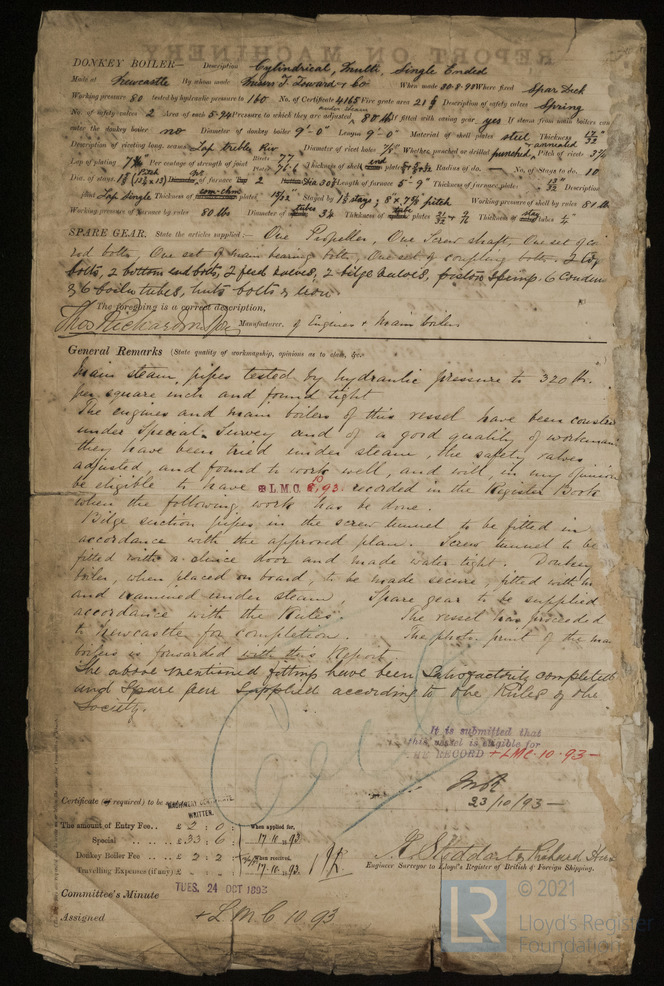 REPORT ON MACHINERY
DONKEY BOILER— Description Cylindrical, Multi, Single Ended
Made at Newcastle By whom made Messrs J. Toward & Co When made 30-8-93 Where fixed Spar Deck
Working pressure 80 tested by hydraulic pressure to 160 No. of Certificate 4165 Fire grate area Description of safety valves Spring
No. of safety valves 2 Area of each 5.94 Pressure to which they are adjusted 80 lb If fitted with easing gear yes If steam from main boilers can
enter the donkey boiler no Diameter of donkey boiler 9'-0" Length 9'-0" Material of shell plates steel Thickness
Description of riveting long. seams Lap Treble Riv Diameter of rivet holes Whether punched or drilled punched & annealed Pitch of rivets
Lap of plating Per centage of strength of joint Rivets 77 Plates Thickness of shell end plates Radius of do. — No. of Stays to do. 10
Dia. of stays Pitch of furnace Top 2 Dia Length of furnace 5'-9" Thickness of furnace plates Description
joint Lap Single Thickness of com-chm plates Stayed by stays, Working pressure of shell by rules 81 lb
Working pressure of furnace by rules 80 lbs Diameter of tubes Thickness of tube plates Thickness of stay tubes
SPARE GEAR. State the articles supplied:— One Propeller, One Screw shaft, One set of con
rod bolts, One set of main bearing bolts, One set of coupling bolts. 2 top
bolts, 2 bottom end bolts, 2 feed valves, 2 bilge valves, piston springs. 6 Conden
& 6 boiler tubes, nuts bolts & iron
The foregoing is a correct description,
Manufacturer. of Engines & Main boilers
General Remarks (State quality of workmanship, opinions as to class, &c.
Main steam pipes tested by hydraulic pressure to 320 lbs.
per square inch and found tight
The engines and main boilers of this vessel have been constr
under Special Survey and of a good quality of workman
they have been tried under steam, the safety valves
adjusted, and found to work well, and will, in my opinion
be eligible to have ✠L.M.C. 10,93 recorded in the Register Book
when the following work has be done.
Bilge suction pipes in the screw tunnel to be fitted in
accordance with the approved plan. Screw tunnel to be
fitted with a sluice door and made water tight. Donkey
boiler, when placed on board, to be made secure, fitted with
and examined under steam. Spare gear to be supplied
accordance with the Rules. The vessel has proceeded
to Newcastle for completion. The photo print of the main
boilers is forwarded with this Report.
The above mentioned fittings have been Satisfactorily completed
and Spare gear Supplied according to the Rules of the
Society.
It is submitted that
this vessel is eligible for
THE RECORD + LMC. 10. 93 —
23/10/93 —
Certificate (if required) to be
MACHINERY CERTIFICATE
WRITTEN.
The amount of Entry Fee.. £ 2 : 0 : When applied for,
Special £ 33 : 6 : 17.10.93
Donkey Boiler Fee £ 2 : 2 : When received,
Travelling Expenses (if any) £ 17.10.93
Engineer Surveyor to Lloyd's Register of British & Foreign Shipping.
Committee's Minute TUES. 24 OCT 1893
Assigned + L M C 10.93
LR
© 2021
Lloyd's Register
Foundation